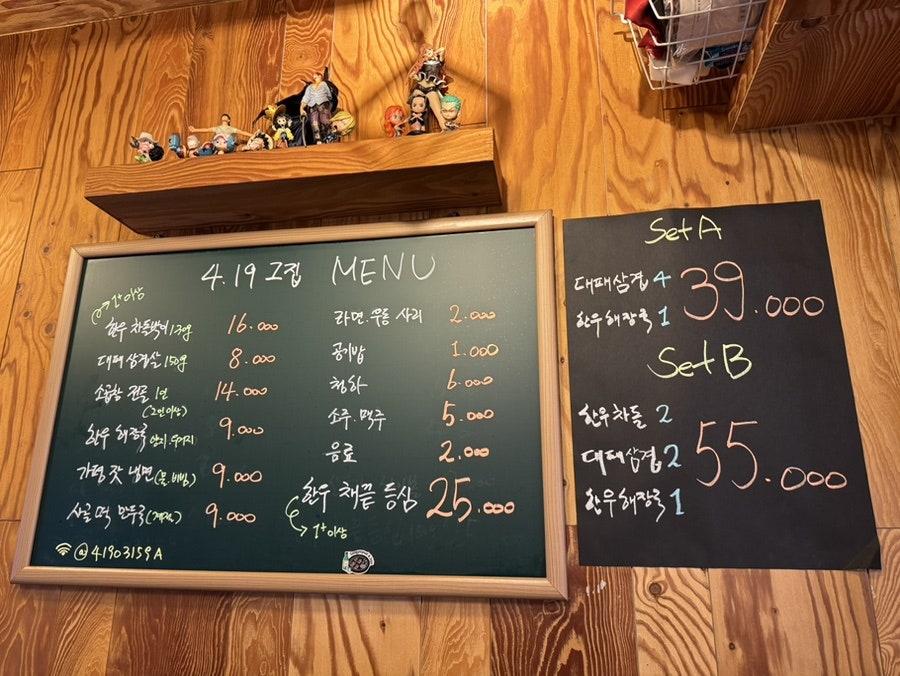 4.19 그집 MENU
1+이상
한우 차돌박이 130g 16.000
대패 삼겹살 150g 8.000
소곱창 전골 1인 14.000
(2인이상)
한우 해장국 양지.우거지 9.000
가평 잣 냉면 (물.비빔) 9.000
사골 떡 만두국 9.000
@41903159A
라면.우동 사리 2.000
공기밥 1.000
청하 6.000
소주.맥주 5.000
음료 2.000
한우 채끝 등심 25.000
1+이상
Set A
대패삼겹 4
한우해장국 1
39.000
Set B
한우차돌 2
대패삼겹 2
한우해장국 1
55.000